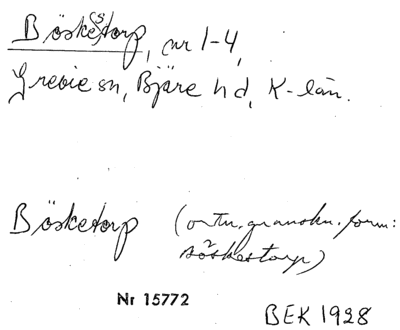 Böske(s)torp, nr 1-4,
Grevie sn, Bjäre hd, K-län.
Böskestorp (ortn.granskn. form:
Böskestorp)
Nr 15772
BEK 1928